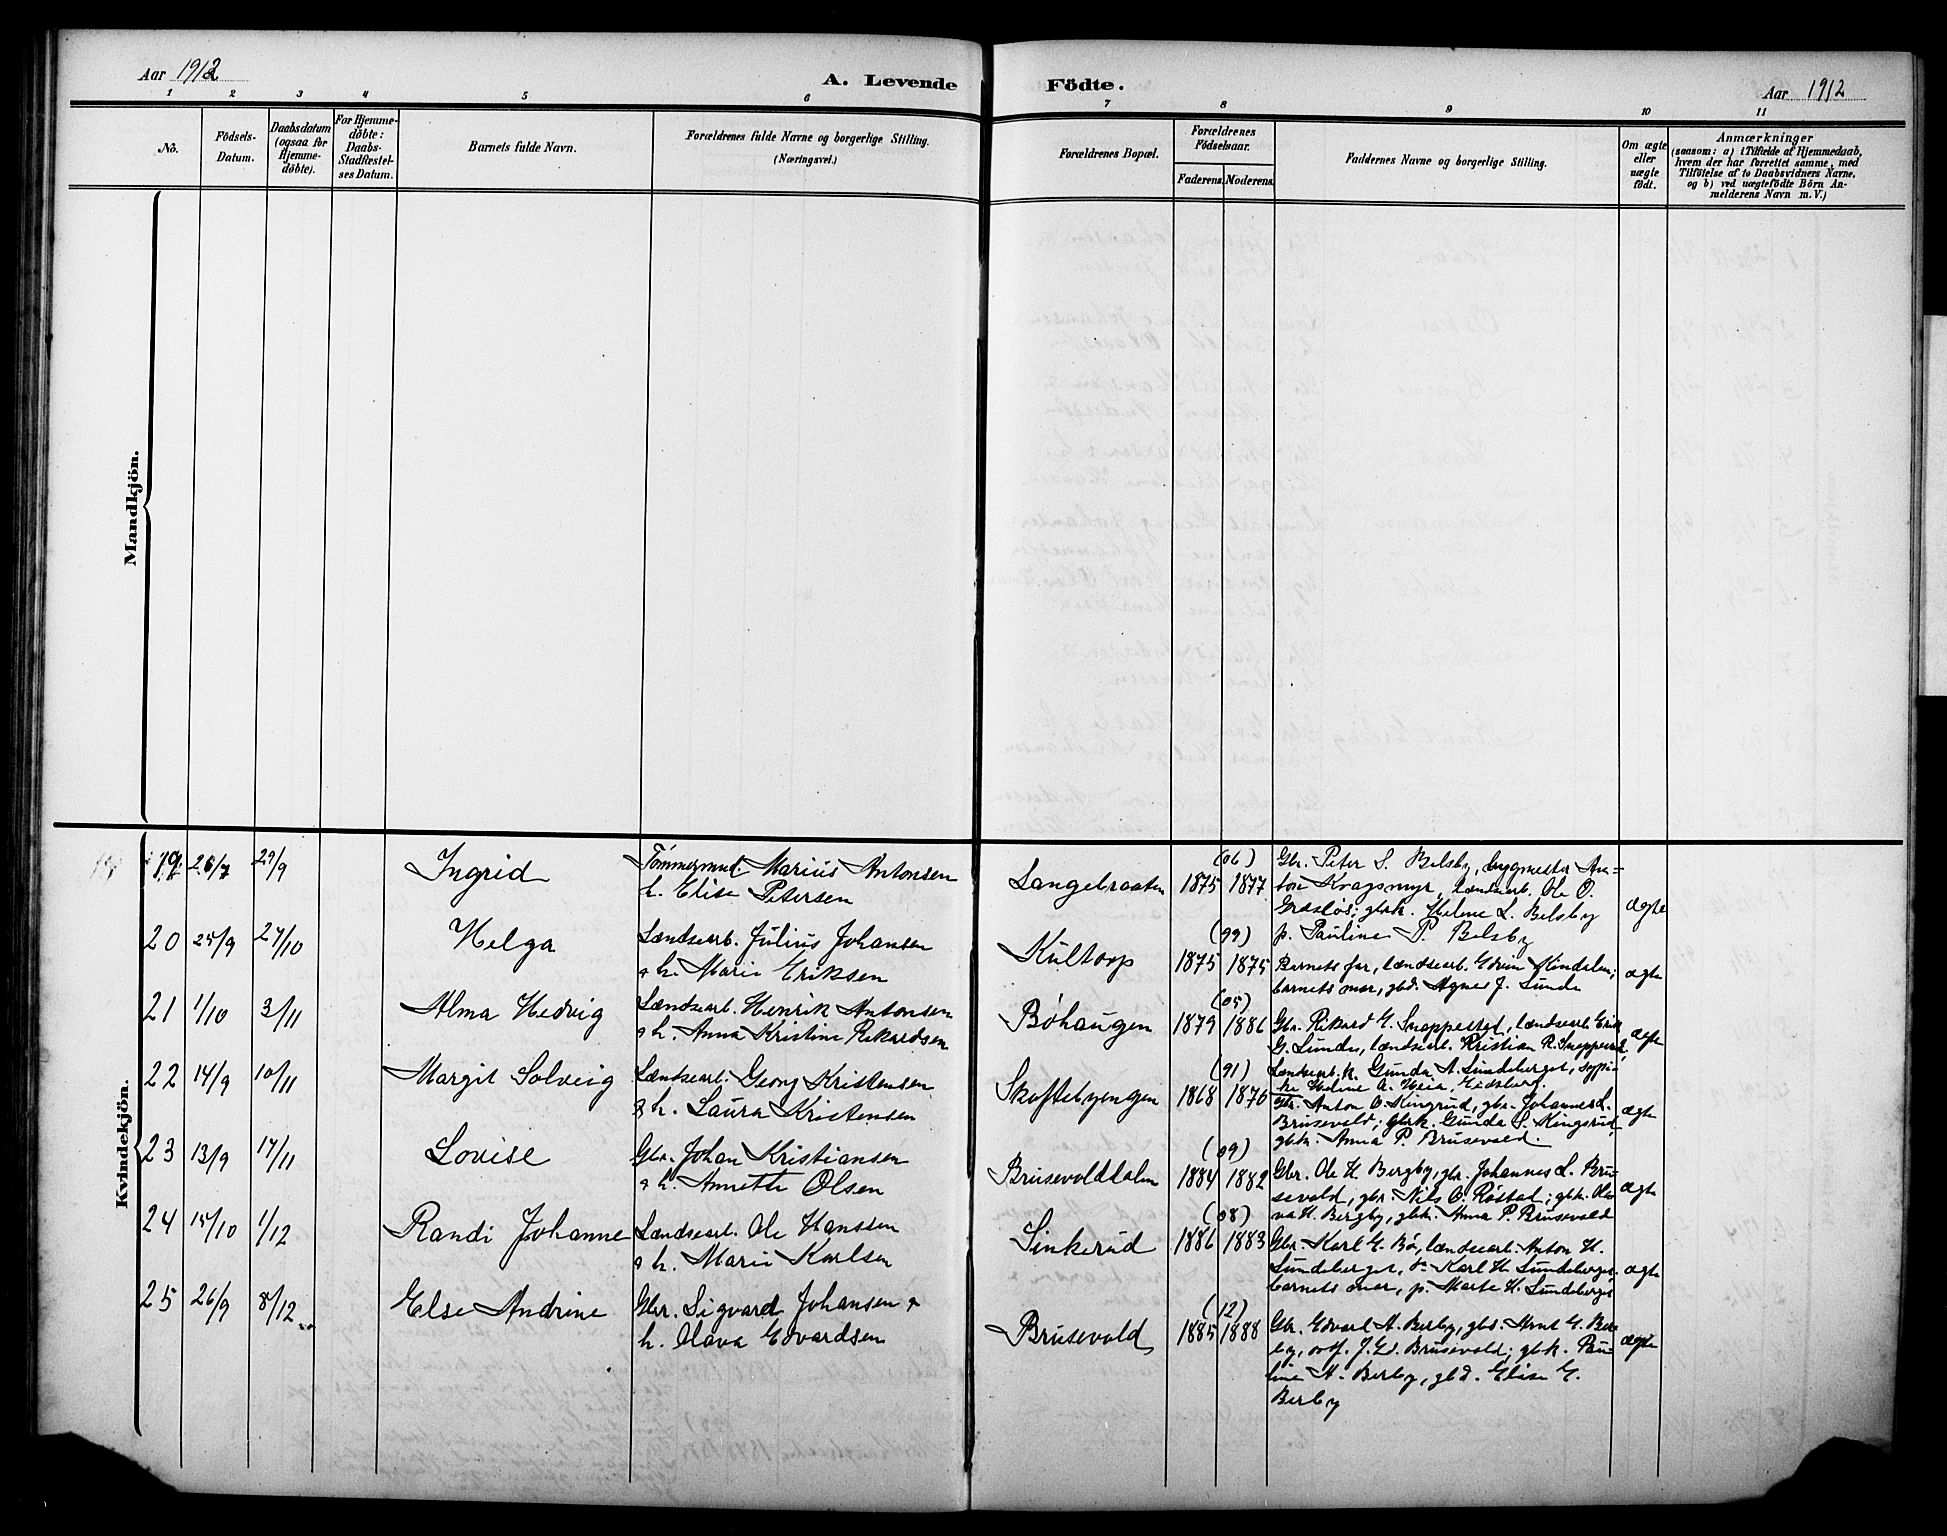 Aar 1912 A. Levende Födte. Aar 1912
1 2 3 4 5 6 7 8 9 10 11
No.
Födsels-
Datum.
Daabsdatum
(ogsaa for
Hjemme-
döbte).
For Hjemme-
döbte:
Daabs-
Stadfæstel-
ses Datum.
Barnets fulde Navn.
Forældrenes fulde Navne og borgerlige Stilling.
(Næringsvei.)
Forældrenes Bopæl.
Forældrenes
Födselsaar.
Faderens. Moderens.
Faddernes Navne og borgerlige Stilling.
Om ægte
eller
uægte
födt.
Anmærkninger
(saasom: a) i Tilfælde af Hjemmedaab,
hvem der har forrettet samme, med
Tilföielse af to Daabsvidners Navne,
og b) ved uægtefödte Börn An-
melderens Navn m. V.)
Mandkjön.
Kvindekjön.
19 26/7 29/9 Ingrid
Tømmermnd. Marius Antonsen
h. Elise Petersen
Langebraaten 1875 (06) 1877
Gbr. Peter S. Belsby, bygmester An=
ton Kragsmyr, landsarb. Ole O.
Grasløs; gbrk. Helene L. Belsby
p. Pauline P. Belsby
ægte
20 25/9 27/10 Helga
Landsarb. Julius Johansen
& h. Marie Eriksen
Kultorp 1875 (99) 1875
Barnets far, landsarb. Edvin Mindalen;
barnets mor, gbd. Agnes J. Lunde
ægte
21 1/10 3/11 Alma Hedvig
Landsarb. Henrik Antonsen
& h. Anna Kristine Rikardsen
Bøhaugen 1879 (05) 1886
Gbr. Rikard E. Snoppestad, landsarb. Erik
G. Lunde, landsarb. Kristian R. Snoppestad,
Landsarb.k. Gunda A. Lundeberget, sypi=
ke Heline A. Heia, Eidsberg.
ægte
22 14/9 10/11 Margit Solveig
Landsarb. Georg Kristensen
& h. Laura Kristensen
Skoftebyengen 1868 (91) 1870
Gbr. Anton O. Kingsrud, gbr. Johannes L.
Brusevold; gbrk. Gunda S. Kingsrud,
gbk. Anna P. Brusevold.
ægte
23 13/9 17/11 Lovise
Gbr. Johan Kristiansen
& h. Annette Olsen
Brusevolddalen 1884 (09) 1882
Gbr. Ole H. Bergby, gbr. Johannes L. Bru=
sevold, gbr. Nils O. Røstad; gbk. Ole=
va H. Bergby, gbk. Anna P. Brusevold
ægte
24 15/10 1/12 Randi Johanne
Landsarb. Ole Hanssen
& h. Marie Karlsen
Sinkerud 1886 (08) 1883
Gbr. Karl E. Bø, landsarb. Anton H.
Lundeberget, do Karl H. Lundeberget,
barnets mor, p. Marte H. Lundeberget
ægte
25 26/9 8/12 Else Andrine
Gbr. Sigvard Johansen &
h. Olava Edvardsen
Brusevold 1885 (12) 1888
Gbr. Edvart A. Berby, gbs. Arnt E. Ber=
by, J. Ed. Brusevold; gbk. Pau=
line A. Berby, gbd. Elise E.
Berby
ægte